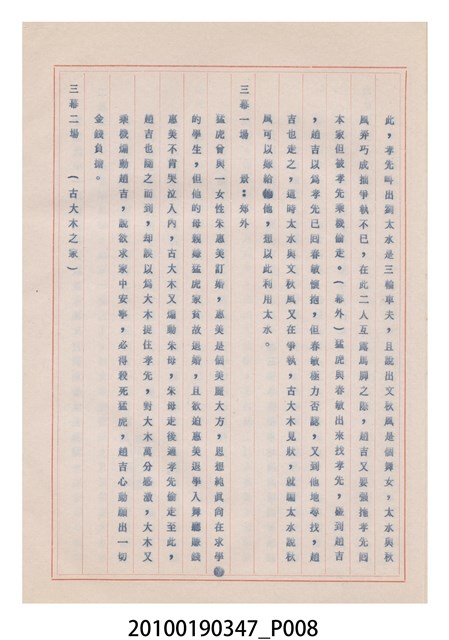 此，孝先叫出劉太水是三輪車夫，且說出文秋鳳是個舞女，太水與秋
鳳弄巧成拙爭執不已，在此二人互露馬脚之際，趙吉又要強拖孝先回
本家但被孝先乘機偷走。（幕外）猛虎與春敏出來找孝先，碰到趙吉
，趙吉以為孝先已回春敏懷抱，但春敏極力否認，又到他地尋找，趙
吉也走之，這時太水與文秋鳳又在爭執，古大木見狀，就騙太水說秋
鳳可以嫁給他，想以此利用太水。
三幕一場　景：郊外
猛虎曾與一女性朱惠美訂婚，惠美是個美麗大方，思想純真尚在求學
的學生，但他的母親嫌猛虎家貧故退婚，且欲迫惠美退學入舞廳賺錢
惠美不肯哭泣入內，古大木又煽動朱母，朱母走後適孝先偷走至此，
趙吉也隨之而到，却誤以為大木捉住孝先，對大木萬分感激，大木又
乘機煽動趙吉，說欲求家中安寧，必得殺死猛虎，趙吉心動願出一切
金錢負擔。
三幕二場　（古大木之家）
20100190347_P008